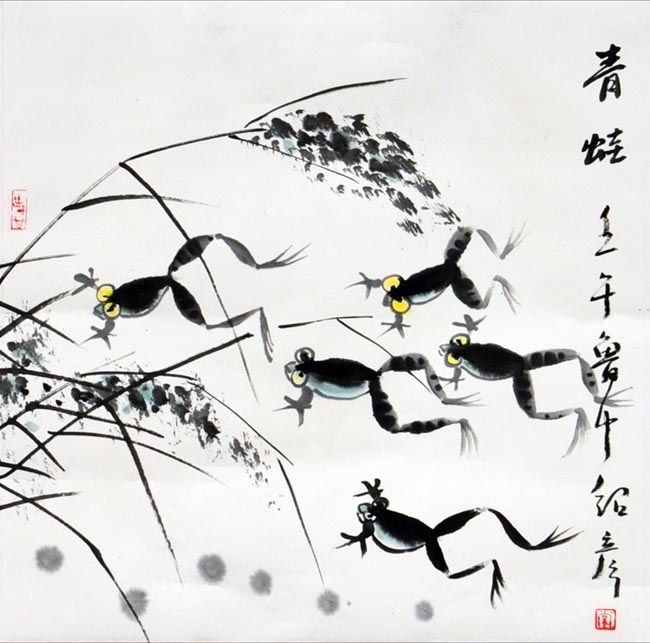 青蛙 壬午 鲁中 绍彦